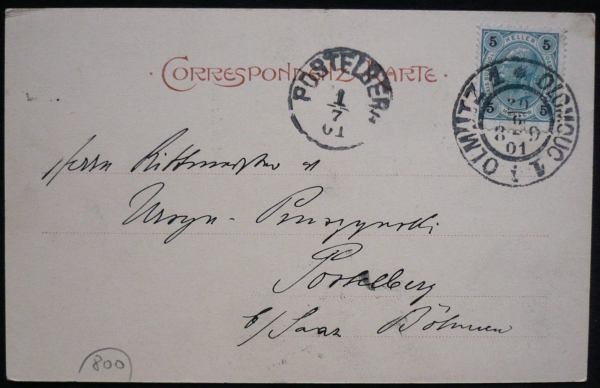 5 HELLER 5
5 5
CORRESPONDENZ-KARTE.
POSTELBERG
1/7
01
OLMÜTZ 1 * OLOMOUC 1
30
6
8-9
01
i
Herrn Rittmeister
Ursyn-Pruszynski
Postelberg
b/Saaz Böhmen
800